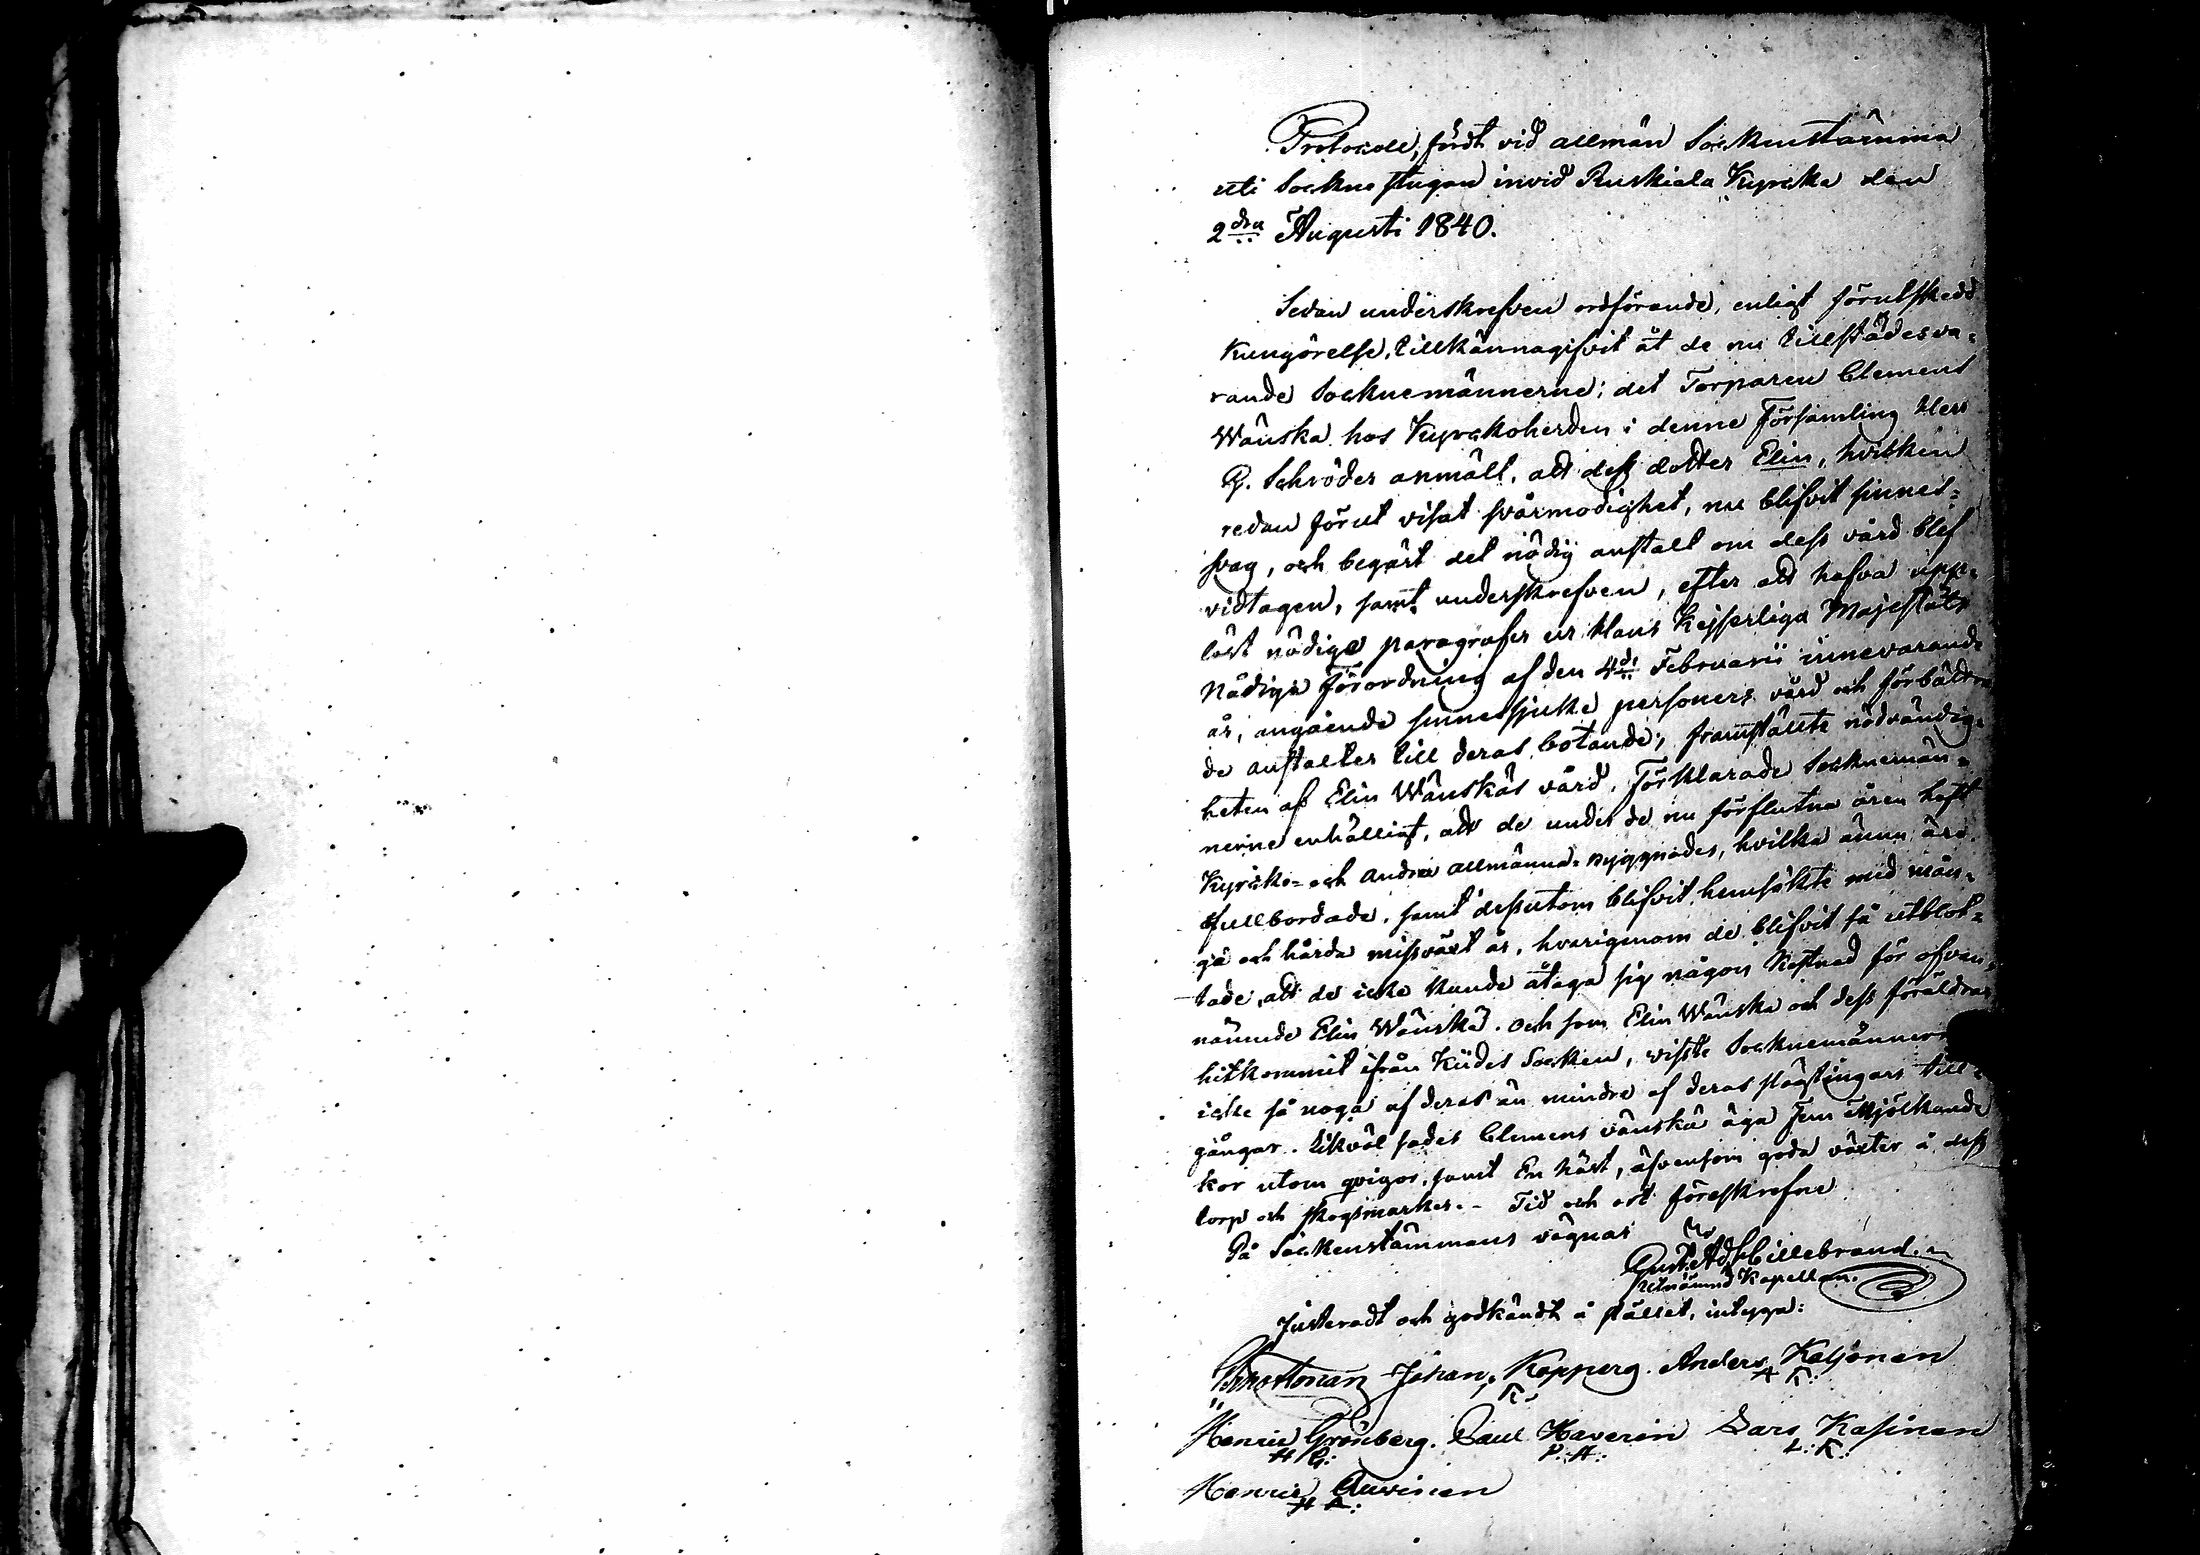 Protocoll, fördt vid allmän Sockenstämma
uti Socknestugan invid Ruskiala Kyrcka den
2dra Augusti 1840.
Sedan underskrefven ordförande, enligt förutskedd
Kungörelse, tillkännagifvit åt de nu tillstädesva-
rande Socknemännerne; det Torparen Clemens
Wänskä hos Kyrckoherden i denne Församling Herr
G. Schröder anmält, att dess dotter Elin, hvilken
redan förut visat svårmodighet, nu blifvit sinnes-
svag, och begärt det nödig anstalt om dess vård blef
vidtagen, samt underskrefven, efter att hafva upp-
läst nödige paragrafer ur Hans Kejserliga Majestäts
Nådiga Förordning af den 4de Februarii innevarande
år, angående sinnessjuke personers vård och förbättran-
de anstalter till deras botande; framstälte nödvändig-
heten af Elin Wänskäs vård, Förklarade Socknemän-
nerne enhälligt, att de under de nu förflutna åren haft
Kyrcko- och andra allmänna- byggnader, hvilka ännu äro
ofullbordade, samt dessutom blifvit hemsökte med mån-
ga och hårda missväxt år, hvarigenom de blifvit så utblot-
tade, att de icke kunde åtaga sig någon kostnad för ofvan-
nämnde Elin Wänskä. Och som Elin Wänskä och dess föräldrar
hitkommit ifrån Kides Socken, visste Socknemännerne
icke så noga af deras än mindre af deras slägtingars till-
gångar. Likväl sades Clemens Vänskä äga Fem Mjölkande
kor utom qvigor, samt En häst, äfvensom goda växter å dess
torp och skogsmarker. - Tid och ort föreskrefne
På Sockenstämmans vägnar
Gust. Adf Hillebrand
Utnämnd Kapellan.
Justeradt och godkändt å stället, intyga:
Johan Kopperg. Anders Kaljonen
K. A K:
Henric Grönberg. Paul Haverin Lars Kasinen
H G: P: H: L: K:
Henric Auvinen
H A: